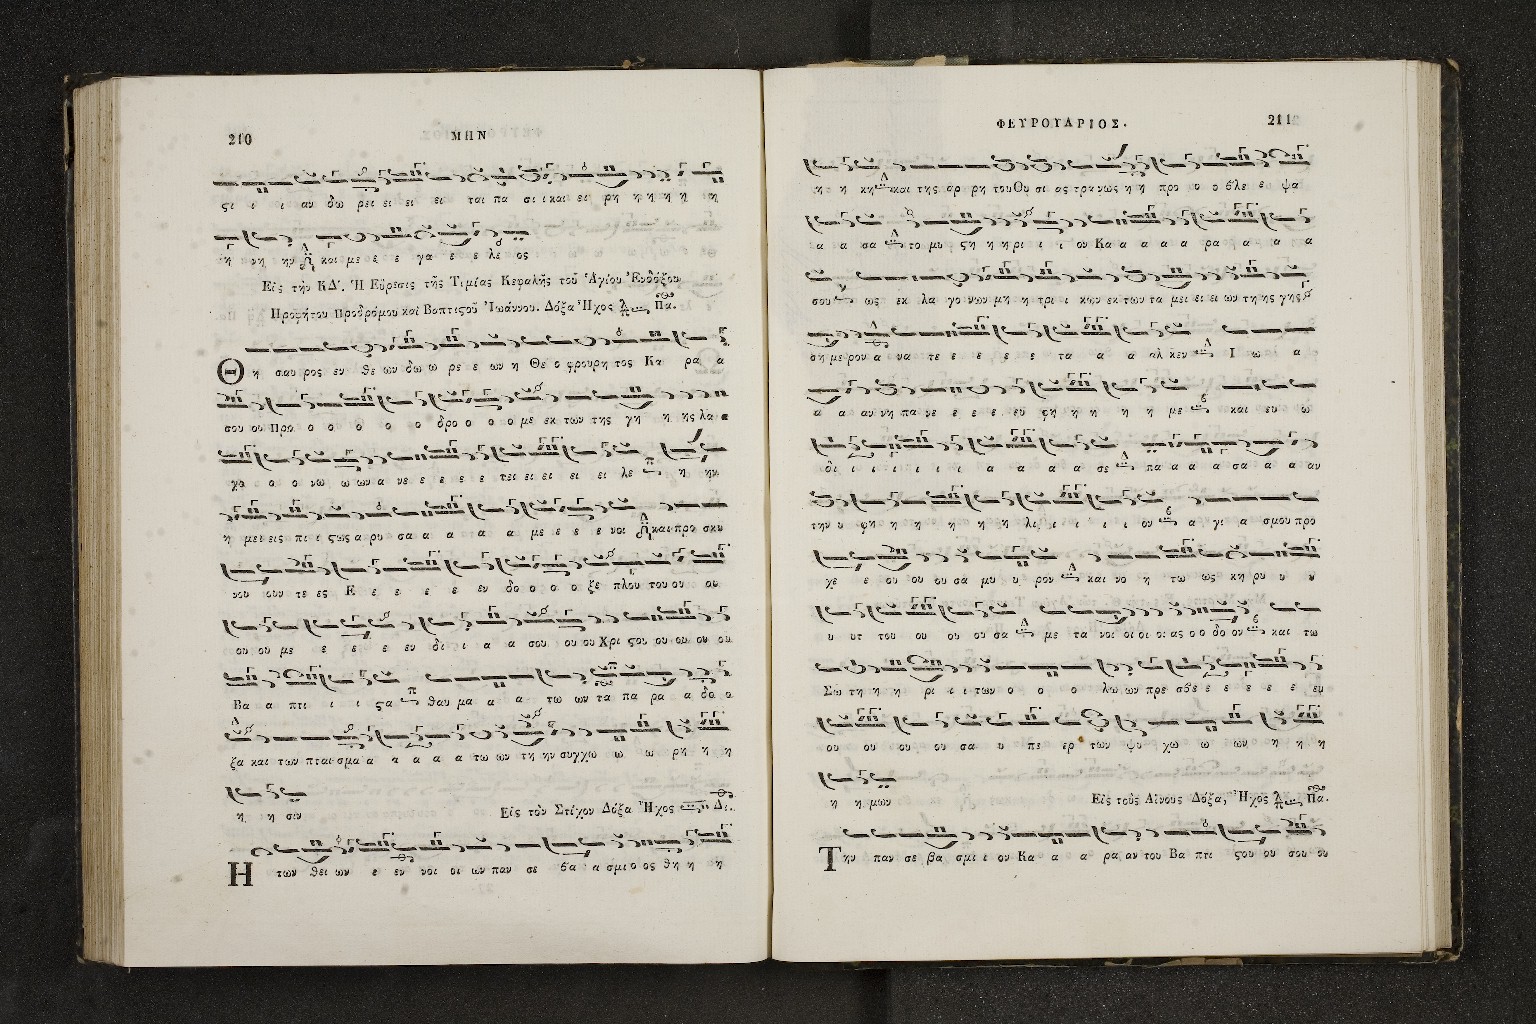 210
ΜΗΝ
ϛι ι ι αν δω ρει ει ει ει ται πα σι ι και ει ρη η η η η η
η νη ην και με ε ε γα ε ε λε ος
Εἰς τὴν ΚΔ'. Ἡ Εὕρεσις τῆς Τιμίας Κεφαλῆς τοῦ Ἁγίου Ἐνδόξου
Προφήτου Προδρόμου καὶ Βαπτιϛοῦ Ἰωάννου. Δόξα Ἦχος Πα.
Θη σαυ ρος εν θε ων δω ω ρε ε ων η Θε ο φρουρη τος Κα ρα α
σου ου Προ ο ο ο ο ο δρο ο ο ο με εκ των της γη η ης λα α
γο ο ο νω ω ων α νε ε ε ε ε τει ει ει ει ει λε η ην
η μει εις πι ι ϛως α ρυ σα α α α α α με ε ε ε νοι και προ σκυ
νου ουν τε ες Ε ε ε ε ε εν δο ο ο ο ξε πλου του ου ου
ου ου με ε ε ε εν δι ι α α σου ου ου Χρι ϛου ου ου ου ου
Βα α πτι ι ι ϛα θαυ μα α α τω ων τα πα ρα α δο ο
ξα και των πται σμα α α α α α τω ων τη ην συγχω ω ω ρη η η
η η σιν
Εἰς τὸν Στίχον Δόξα Ἦχος Δι.
Η των θει ων ε εν νοι οι ων παν σε βα α σμι ο ος θη η η
ΦΕΥΡΟΥΑΡΙΟΣ.
211
η η κη και της αρ ρη του Θυ σι ας τρανως η η προ ο ο βλε ε ψα
α α σα το μυ ϛη η η ρι ι ι ου Κα α α α α ρα α α α
σου ως εκ λα γο νων μη η τρι ι κων εκ των τα μει ει ει ων τη ης γης
ση με ρον α να τε ε ε ε ε τα α α αλ κεν Ι ω α
α α αν νη πα νε ε ε ε ευ φη η η η η με και ευ ω
δι ι ι ι ι ι α α α α σε πα α α α σα α α αν
την υ φη η η η η η λι ι ι ι ι ου α γι α σμου προ
χε ε ου ου ου σα μυ υ ρον και νο η τω ως κη ρυ υ υ
υ υτ του ου ου ου σα με τα νοι οι οι οι ας ο ο δο ον και τω
Σω τη η η ρι ι ι των ο ο ο λω ων πρε σβε ε ε ε ε ε ευ
ου ου ου ου σα υ πε ερ των ψυ χω ω ων η η η
η η μων
Εἰς τοὺς Αἴνους Δόξα, Ἦχος Πα.
Την παν σε βα σμι ι ου Κα α α ρα αν του Βα πτι ϛου ου σου ου